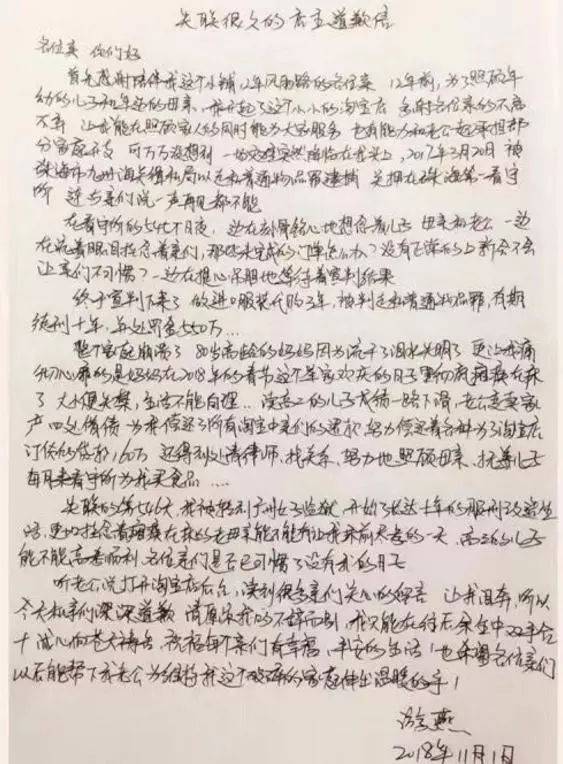 失联很久的店主道歉信
各位亲 你们好
首先感谢陪伴我这个小铺12年风雨路的各位亲 12年前,为了照顾年
幼的儿子和年迈的母亲,我开起了这个小小的淘宝店 多谢各位亲的不离
不弃 让我能在照顾家人的同时能为大家服务 也有能力和老公一起承担部
分家庭开支 可万万没想到 一场灾难突然降临在我头上,2017年3月20日 被
珠海市九州海关缉私局以走私普通物品罪逮捕 关押在珠海第一看守
所 连与亲们说一声再见都不能
在看守所的5百个日夜 一边在刻骨铭心地想念着儿子 母亲和老公 一边
在流着眼泪挂念着亲们,那些未完成的订单怎么办?没有正常的上新会不会
让亲们不习惯?一边在提心吊胆地等待着宣判结果
终于宣判下来了 做进口服装代购3年,被判走私普通物品罪,有期
徒刑十年,并处罚金550万...
整个家庭崩溃了 80岁高龄的妈妈因为流干了泪水失明了 更让我痛
彻心扉的是妈妈在2018年的春节这个举家欢庆的日子里彻底瘫痪在床
了 大小便失禁,生活不能自理... 读高二的儿子成绩一路下滑,老公变卖家
产四处借债 为我偿还了所有淘宝中亲们的退款 努力偿还着各种为了淘宝店
订货的贷款160万 还得到处请律师,找关系,努力地照顾母亲,抚养儿子
每月来看守所为我买食品....
失联的第546天,我被转到广州女子监狱,开始了长达十年的服刑改造生
活,更加挂念着瘫痪在床的老母亲能不能有让我床前尽孝的一天 高三的儿子
能不能高考顺利 各位亲们是否已习惯了没有我的日子
听老公说打开淘宝店后台,读到很多亲们关心的留言 让我泪奔,所以
今天和亲们深深道歉 请原谅我的不辞而别,我只能在往后余生中双手合
十 诚心向苍天祷告,祝福每个亲们有幸福,平安的生活!也希望各位亲们
以后能帮下我老公 为维持我这个破碎的家庭伸出温暖的手!
游燕
2018年11月1日